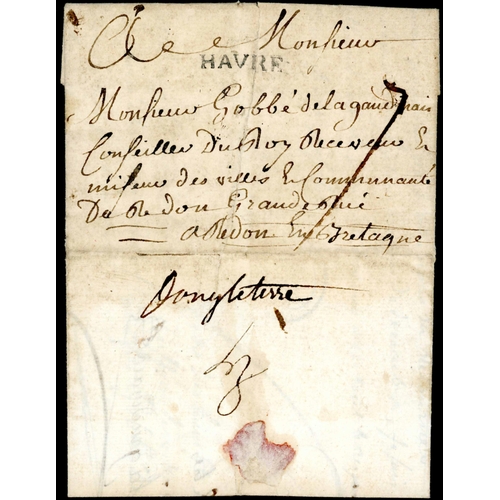 A Monsieur
HAVRE
Monsieur Gobbé de la gaudinais
Conseiller Du Roy Receveur &
miseur des villes & Communauté
De Redon Grande Rüe
a Redon En Bretagne
7
Dangleterre